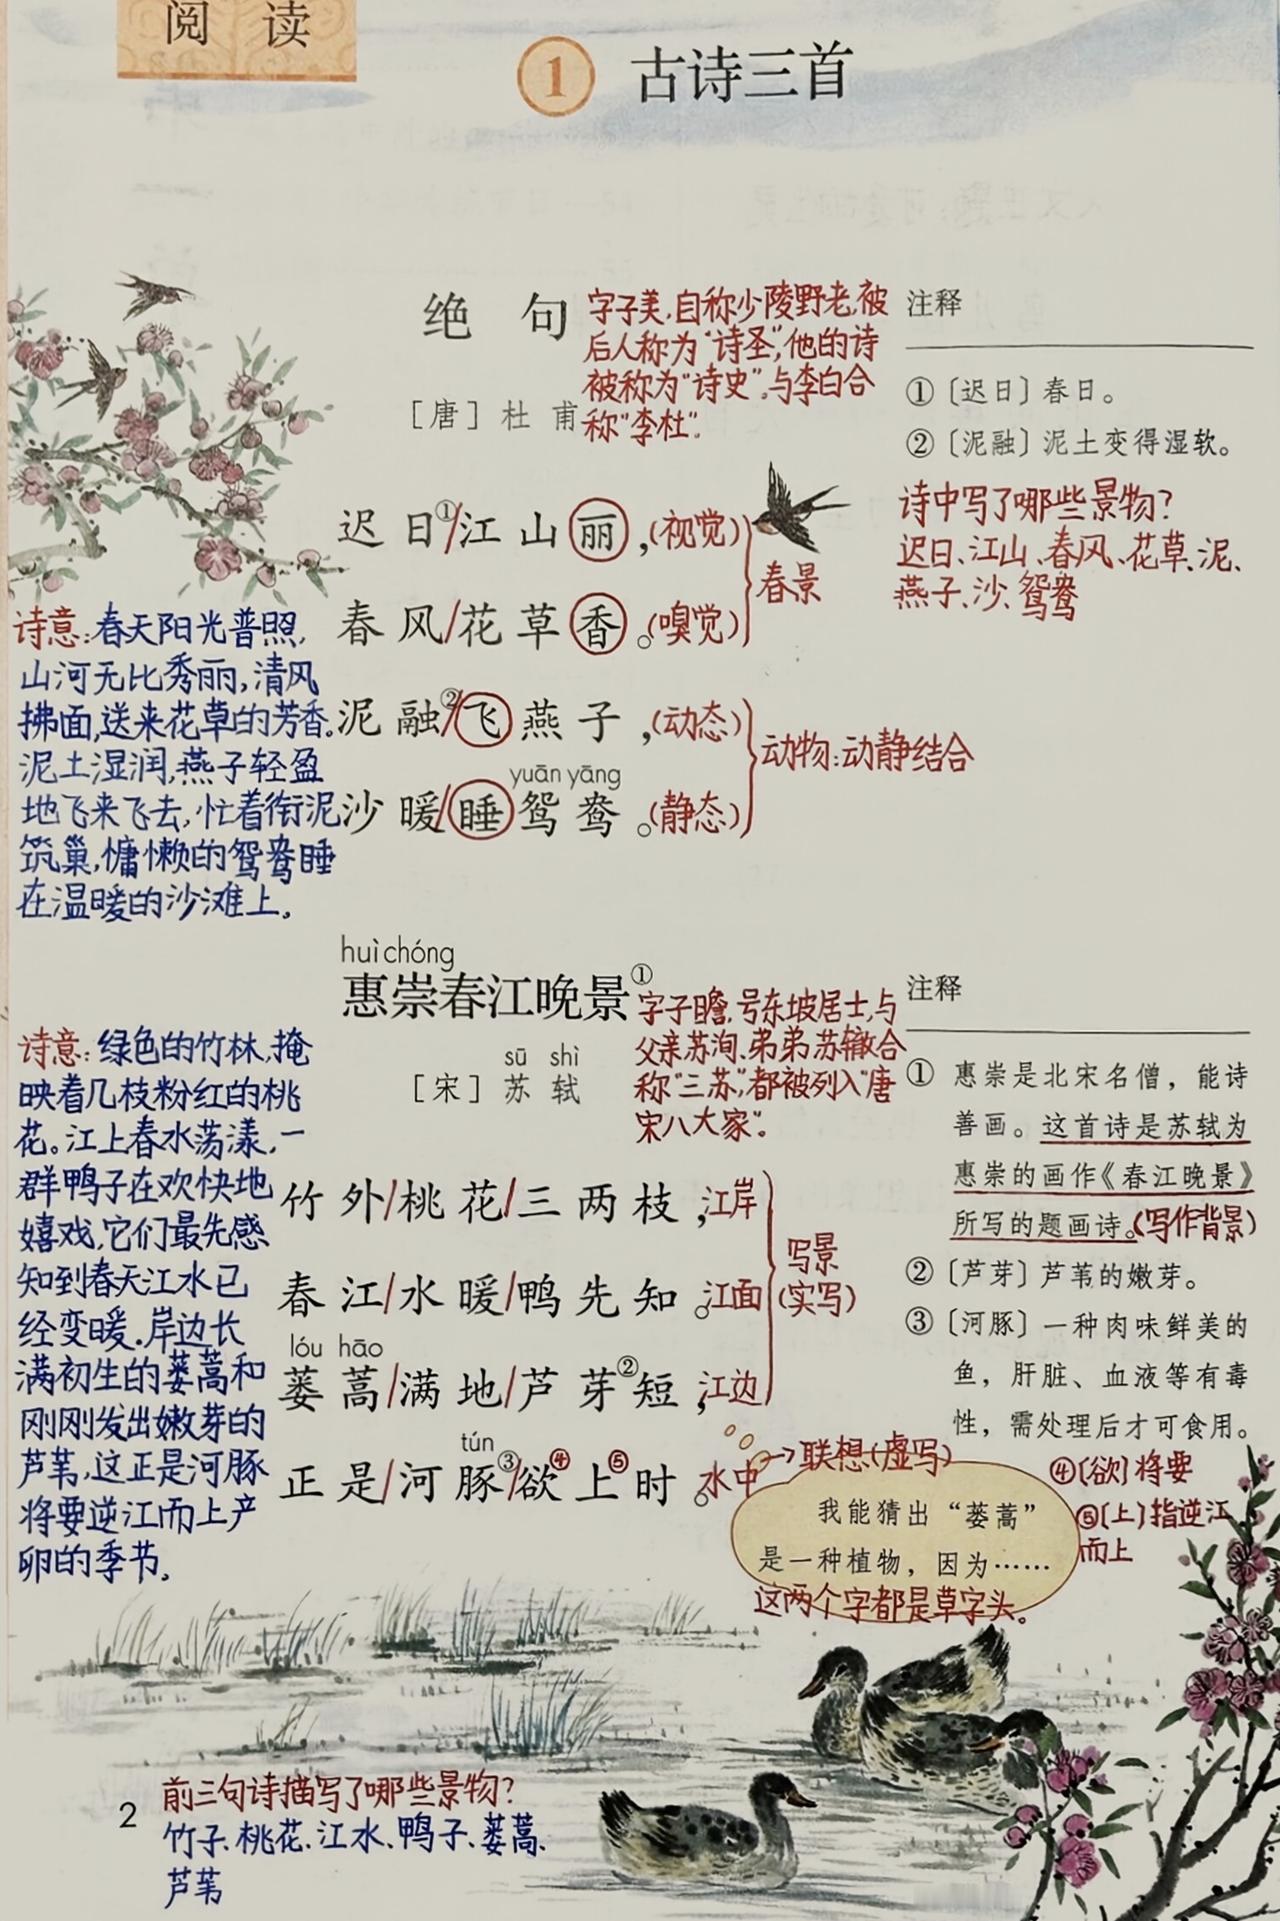 阅读
1 古诗三首
绝句
[唐] 杜甫
字子美,自称少陵野老,被
后人称为“诗圣”,他的诗
被称为“诗史”。与李白合
称“李杜”。
迟日①/江山丽,(视觉)
春风/花草香。(嗅觉)
春景
泥融②/飞燕子,(动态)
yuān yāng
沙暖/睡鸳鸯。(静态)
动物:动静结合
注释
①〔迟日〕春日。
②〔泥融〕泥土变得湿软。
诗中写了哪些景物?
迟日、江山、春风、花草、泥、
燕子、沙、鸳鸯
诗意:春天阳光普照,
山河无比秀丽,清风
拂面,送来花草的芳香。
泥土湿润,燕子轻盈
地飞来飞去,忙着衔泥
筑巢,慵懒的鸳鸯睡
在温暖的沙滩上。
huì chóng
惠崇春江晚景①
sū shì
[宋] 苏轼
字子瞻,号东坡居士,与
父亲苏洵、弟弟苏辙合
称“三苏”,都被列入“唐
宋八大家”。
竹外/桃花/三两枝,江岸
春江/水暖/鸭先知。江面
lóu hāo
蒌蒿/满地/芦芽②短,江边
tún
正是/河豚③/欲④上⑤时。水中
写景
(实写)
→联想(虚写)
注释
① 惠崇是北宋名僧，能诗
善画。这首诗是苏轼为
惠崇的画作《春江晚景》
所写的题画诗。(写作背景)
②〔芦芽〕芦苇的嫩芽。
③〔河豚〕一种肉味鲜美的
鱼，肝脏、血液等有毒
性，需处理后才可食用。
④〔欲〕将要
⑤〔上〕指逆江
而上
我能猜出“蒌蒿”
是一种植物，因为……
这两个字都是草字头。
诗意:绿色的竹林,掩
映着几枝粉红的桃
花。江上春水荡漾,一
群鸭子在欢快地
嬉戏,它们最先感
知到春天江水已
经变暖.岸边长
满初生的蒌蒿和
刚刚发出嫩芽的
芦苇,这正是河豚
将要逆江而上产
卵的季节。
前三句诗描写了哪些景物?
竹子、桃花、江水、鸭子、蒌蒿、
芦苇
2